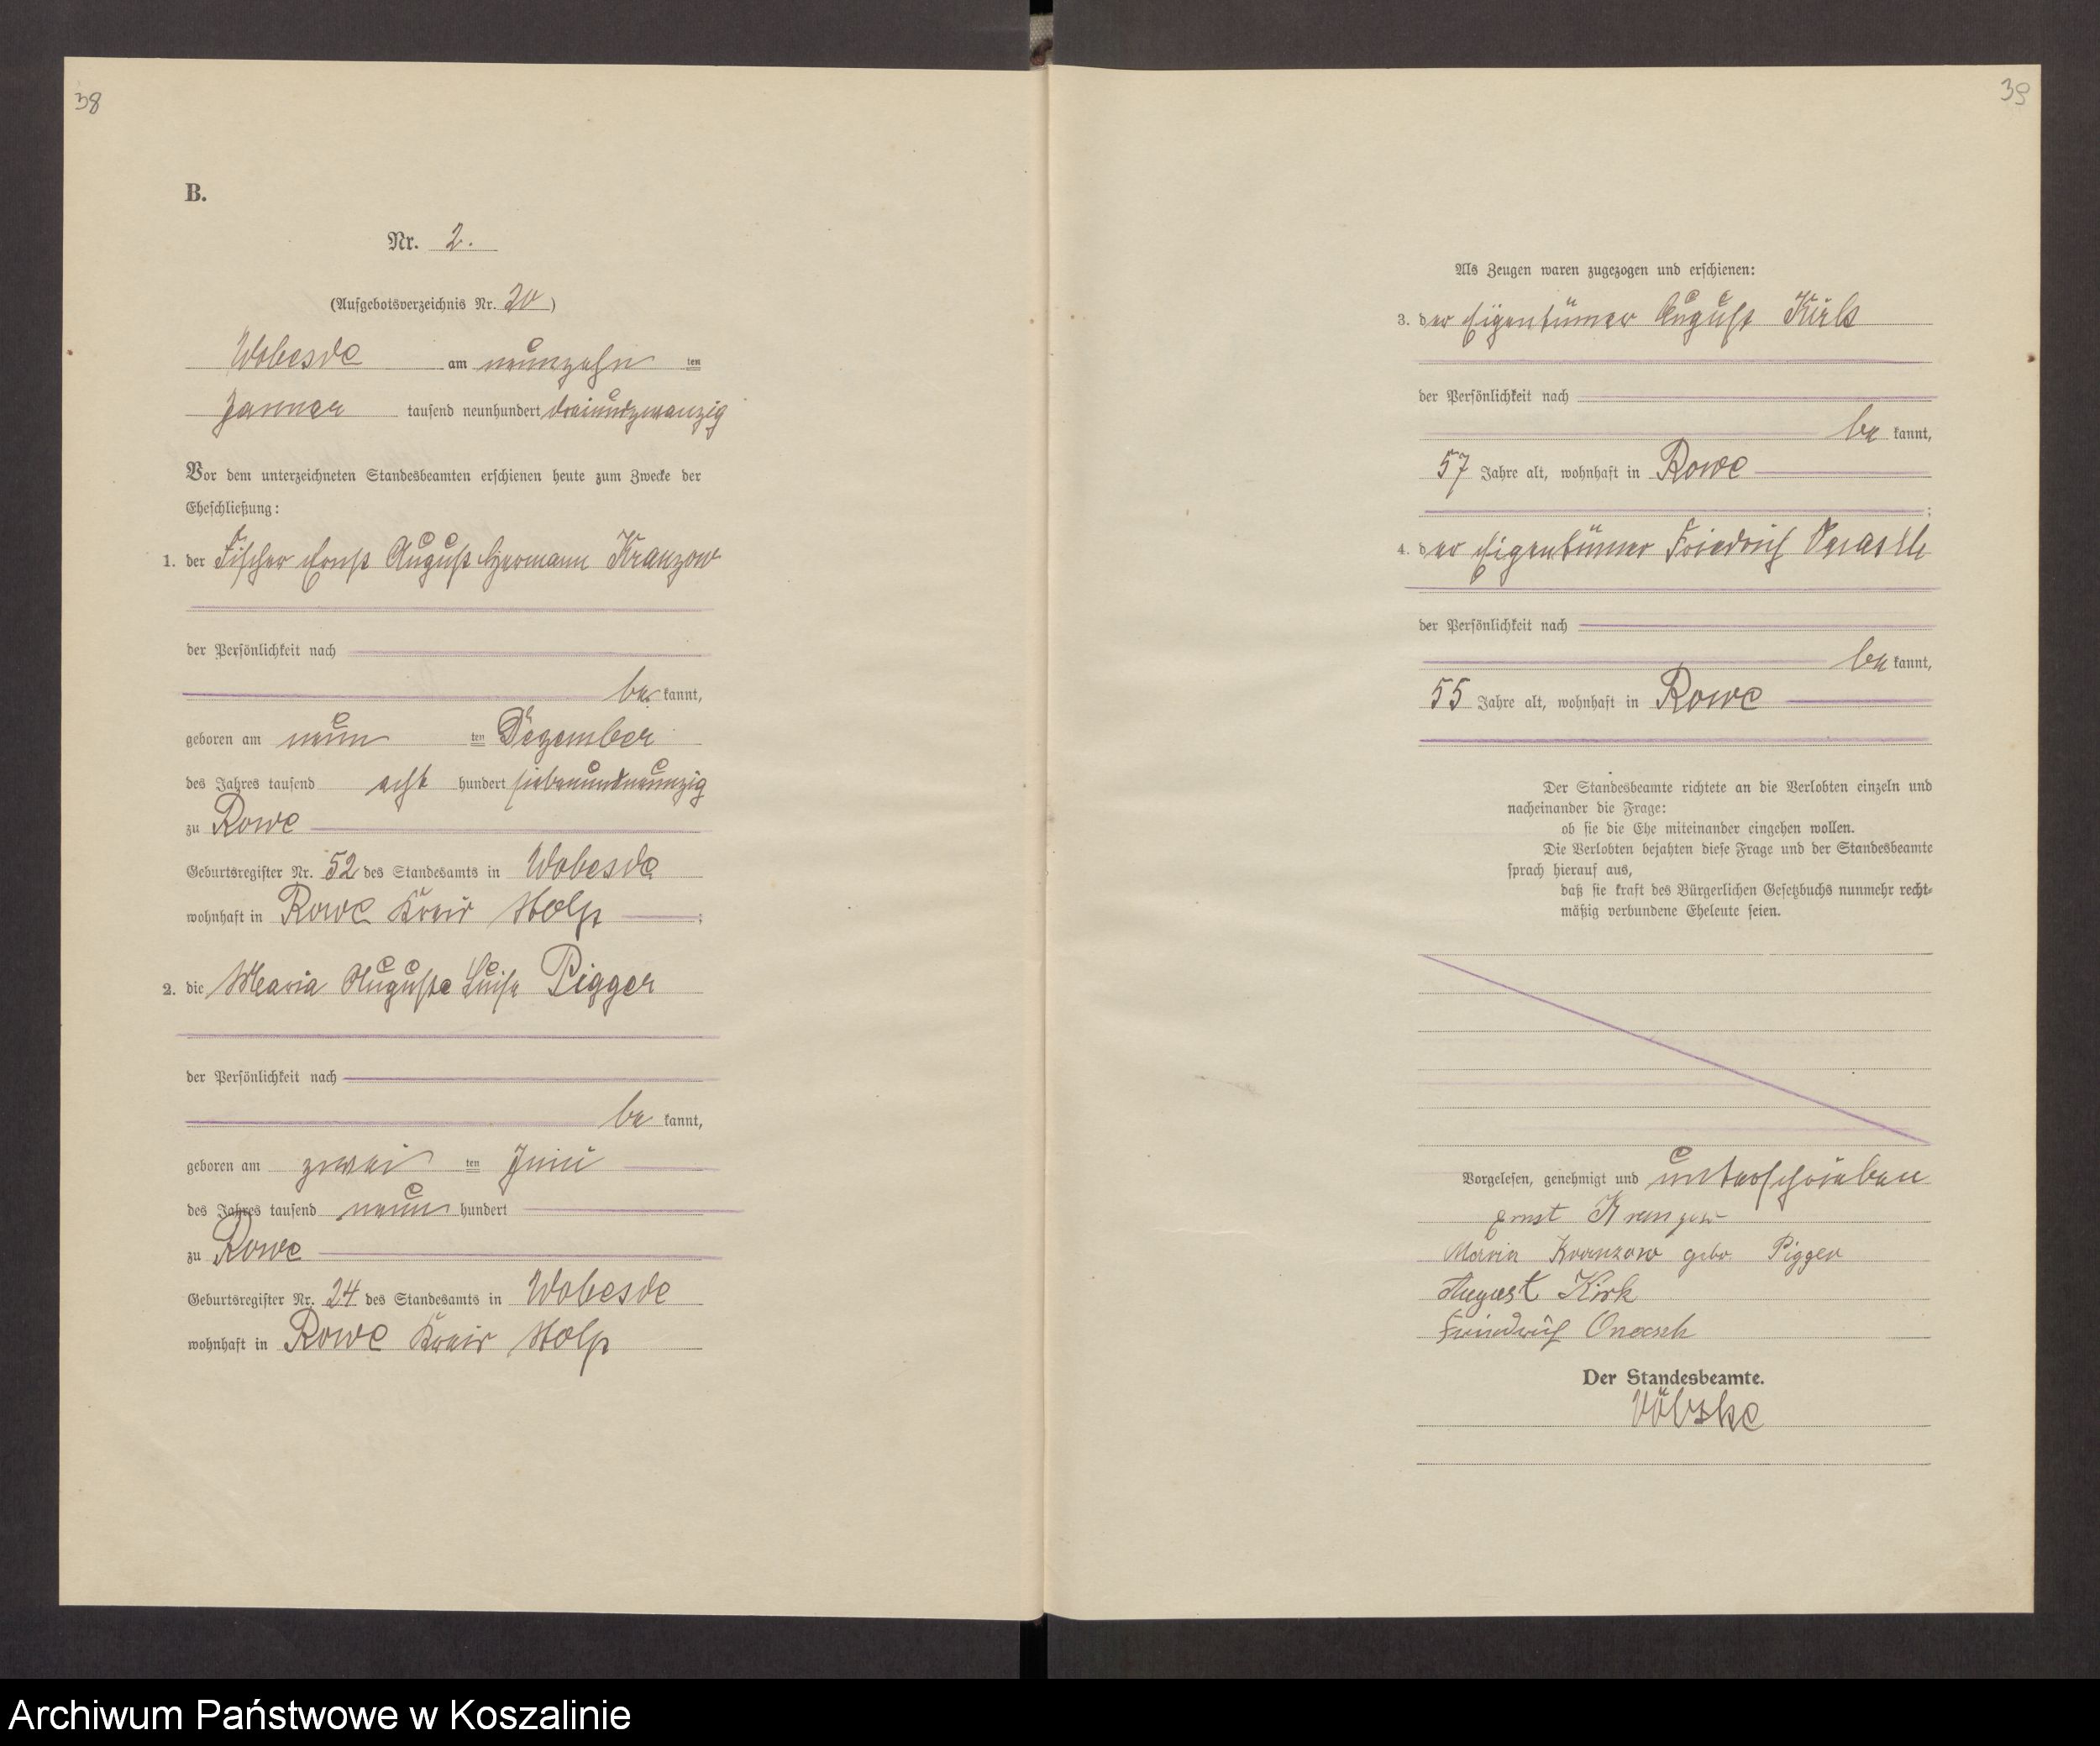 38
B.
Nr. 2.
(Aufgebotsverzeichnis Nr. 20)
Wobesde am neunzehn ten
Januar tausend neunhundert dreiundzwanzig
Vor dem unterzeichneten Standesbeamten erschienen heute zum Zwecke der
Eheschließung:
1. der Fischer Ernst August Hermann Kranzow
der Persönlichkeit nach
be kannt,
geboren am neun ten Dezember
des Jahres tausend acht hundert siebenundneunzig
zu Rowe
Geburtsregister Nr. 52 des Standesamts in Wobesde
wohnhaft in Rowe Kreis Stolp ;
2. die Maria Auguste Luise Pigger
der Persönlichkeit nach
be kannt,
geboren am zwei ten Juni
des Jahres tausend neun hundert
zu Rowe
Geburtsregister Nr. 24 des Standesamts in Wobesde
wohnhaft in Rowe Kreis Stolp
39
Als Zeugen waren zugezogen und erschienen:
3. der Eigentümer August Kirk
der Persönlichkeit nach
be kannt,
57 Jahre alt, wohnhaft in Rowe
;
4. der Eigentümer Friedrich
der Persönlichkeit nach
be kannt,
55 Jahre alt, wohnhaft in Rowe
Der Standesbeamte richtete an die Verlobten einzeln und
nacheinander die Frage:
ob sie die Ehe miteinander eingehen wollen.
Die Verlobten bejahten diese Frage und der Standesbeamte
sprach hierauf aus,
daß sie kraft des Bürgerlichen Gesetzbuchs nunmehr recht-
mäßig verbundene Eheleute seien.
Vorgelesen, genehmigt und unterschrieben
Ernst Kranzow
Maria Kranzow geb. Pigger
August Kirk
Friedrich
Der Standesbeamte.
Archiwum Państwowe w Koszalinie